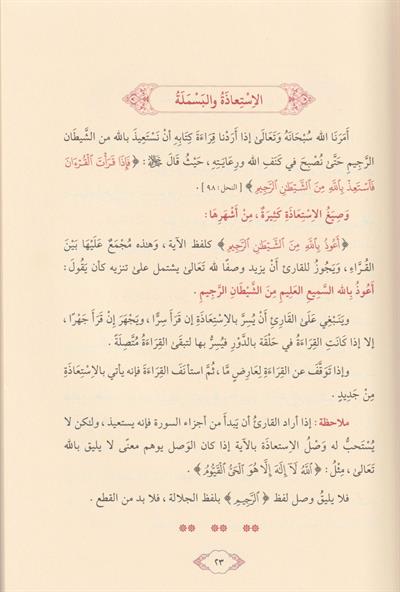 الاِسْتِعاذَةُ والبَسْمَلَةُ
أَمَرَنَا الله سُبْحَانَهُ وَتَعَالَىٰ إذا أَرَدْنا قِرَاءَةَ كِتَابِهِ أَنْ نَسْتَعِيذَ بالله من الشَّيطَان
الرَّجِيمِ حَتَّىٰ نُصْبِحَ في كَنَفِ الله ورِعَايَتِهِ، حَيْثُ قَالَ ﷻ: ﴿ فَإِذَا قَرَأْتَ الْقُرْءَانَ
فَاسْتَعِذْ بِاللَّهِ مِنَ الشَّيْطَٰنِ الرَّجِيمِ ﴾ [النحل: ٩٨] .
وَصِيَغُ الاِسْتِعَاذَةِ كَثِيرَةٌ، مِنْ أَشْهَرِهَا:
﴿ أَعُوذُ بِاللَّهِ مِنَ الشَّيْطَٰنِ الرَّجِيمِ ﴾ كلفظ الآية، وَهٰذه مُجْمَعٌ عَلَيْهَا بَيْنَ
القُرَّاءِ، وَيَجُوزُ للقارئ أَنْ يزيد وصفًا لله تَعَالىٰ يشتمل على تنزيه كأن يَقُولَ:
أَعُوذُ بِالله السَّمِيعِ العَلِيمِ مِنَ الشَّيْطَانِ الرَّجِيمِ .
ويَنْبَغِي عَلَىٰ القَارِئِ أَنْ يُسِرَّ بالاِسْتِعَاذَةِ إن قرَأَ سِرًّا، ويَجْهَرَ إنْ قَرَأَ جَهْرًا،
إلا إذا كَانَتِ القِرَاءَةُ في حَلْقَة بالدَّوْرِ فيُسِرُّ بها لتبقَىٰ القِرَاءَةُ مُتَّصِلَةً.
وإذا تَوَقَّفَ عَن القِرَاءَةِ لِعَارِضٍ مَّا، ثُمَّ استأنَفَ القِرَاءَةَ فإنه يأتي بالاِسْتِعَاذَةِ
مِنْ جَدِيدٍ .
ملاحظة: إذا أراد القارئُ أن يَبدأَ من أجزاء السورة فإنه يستعيذ، ولكن لا
يُسْتَحبُّ له وَصْلُ الاِستعاذة بالآية إذا كان الوَصل يوهم معنًى لا يليق بالله
تَعَالىٰ، مِثْلُ: ﴿ اللَّهُ لَآ إِلَٰهَ إِلَّا هُوَ الْحَيُّ الْقَيُّومُ ﴾ .
فلا يليقُ وصل لفظ ﴿ الرَّجِيمِ ﴾ بلفظ الجلالة، فلا بد من القطع .
٢٣